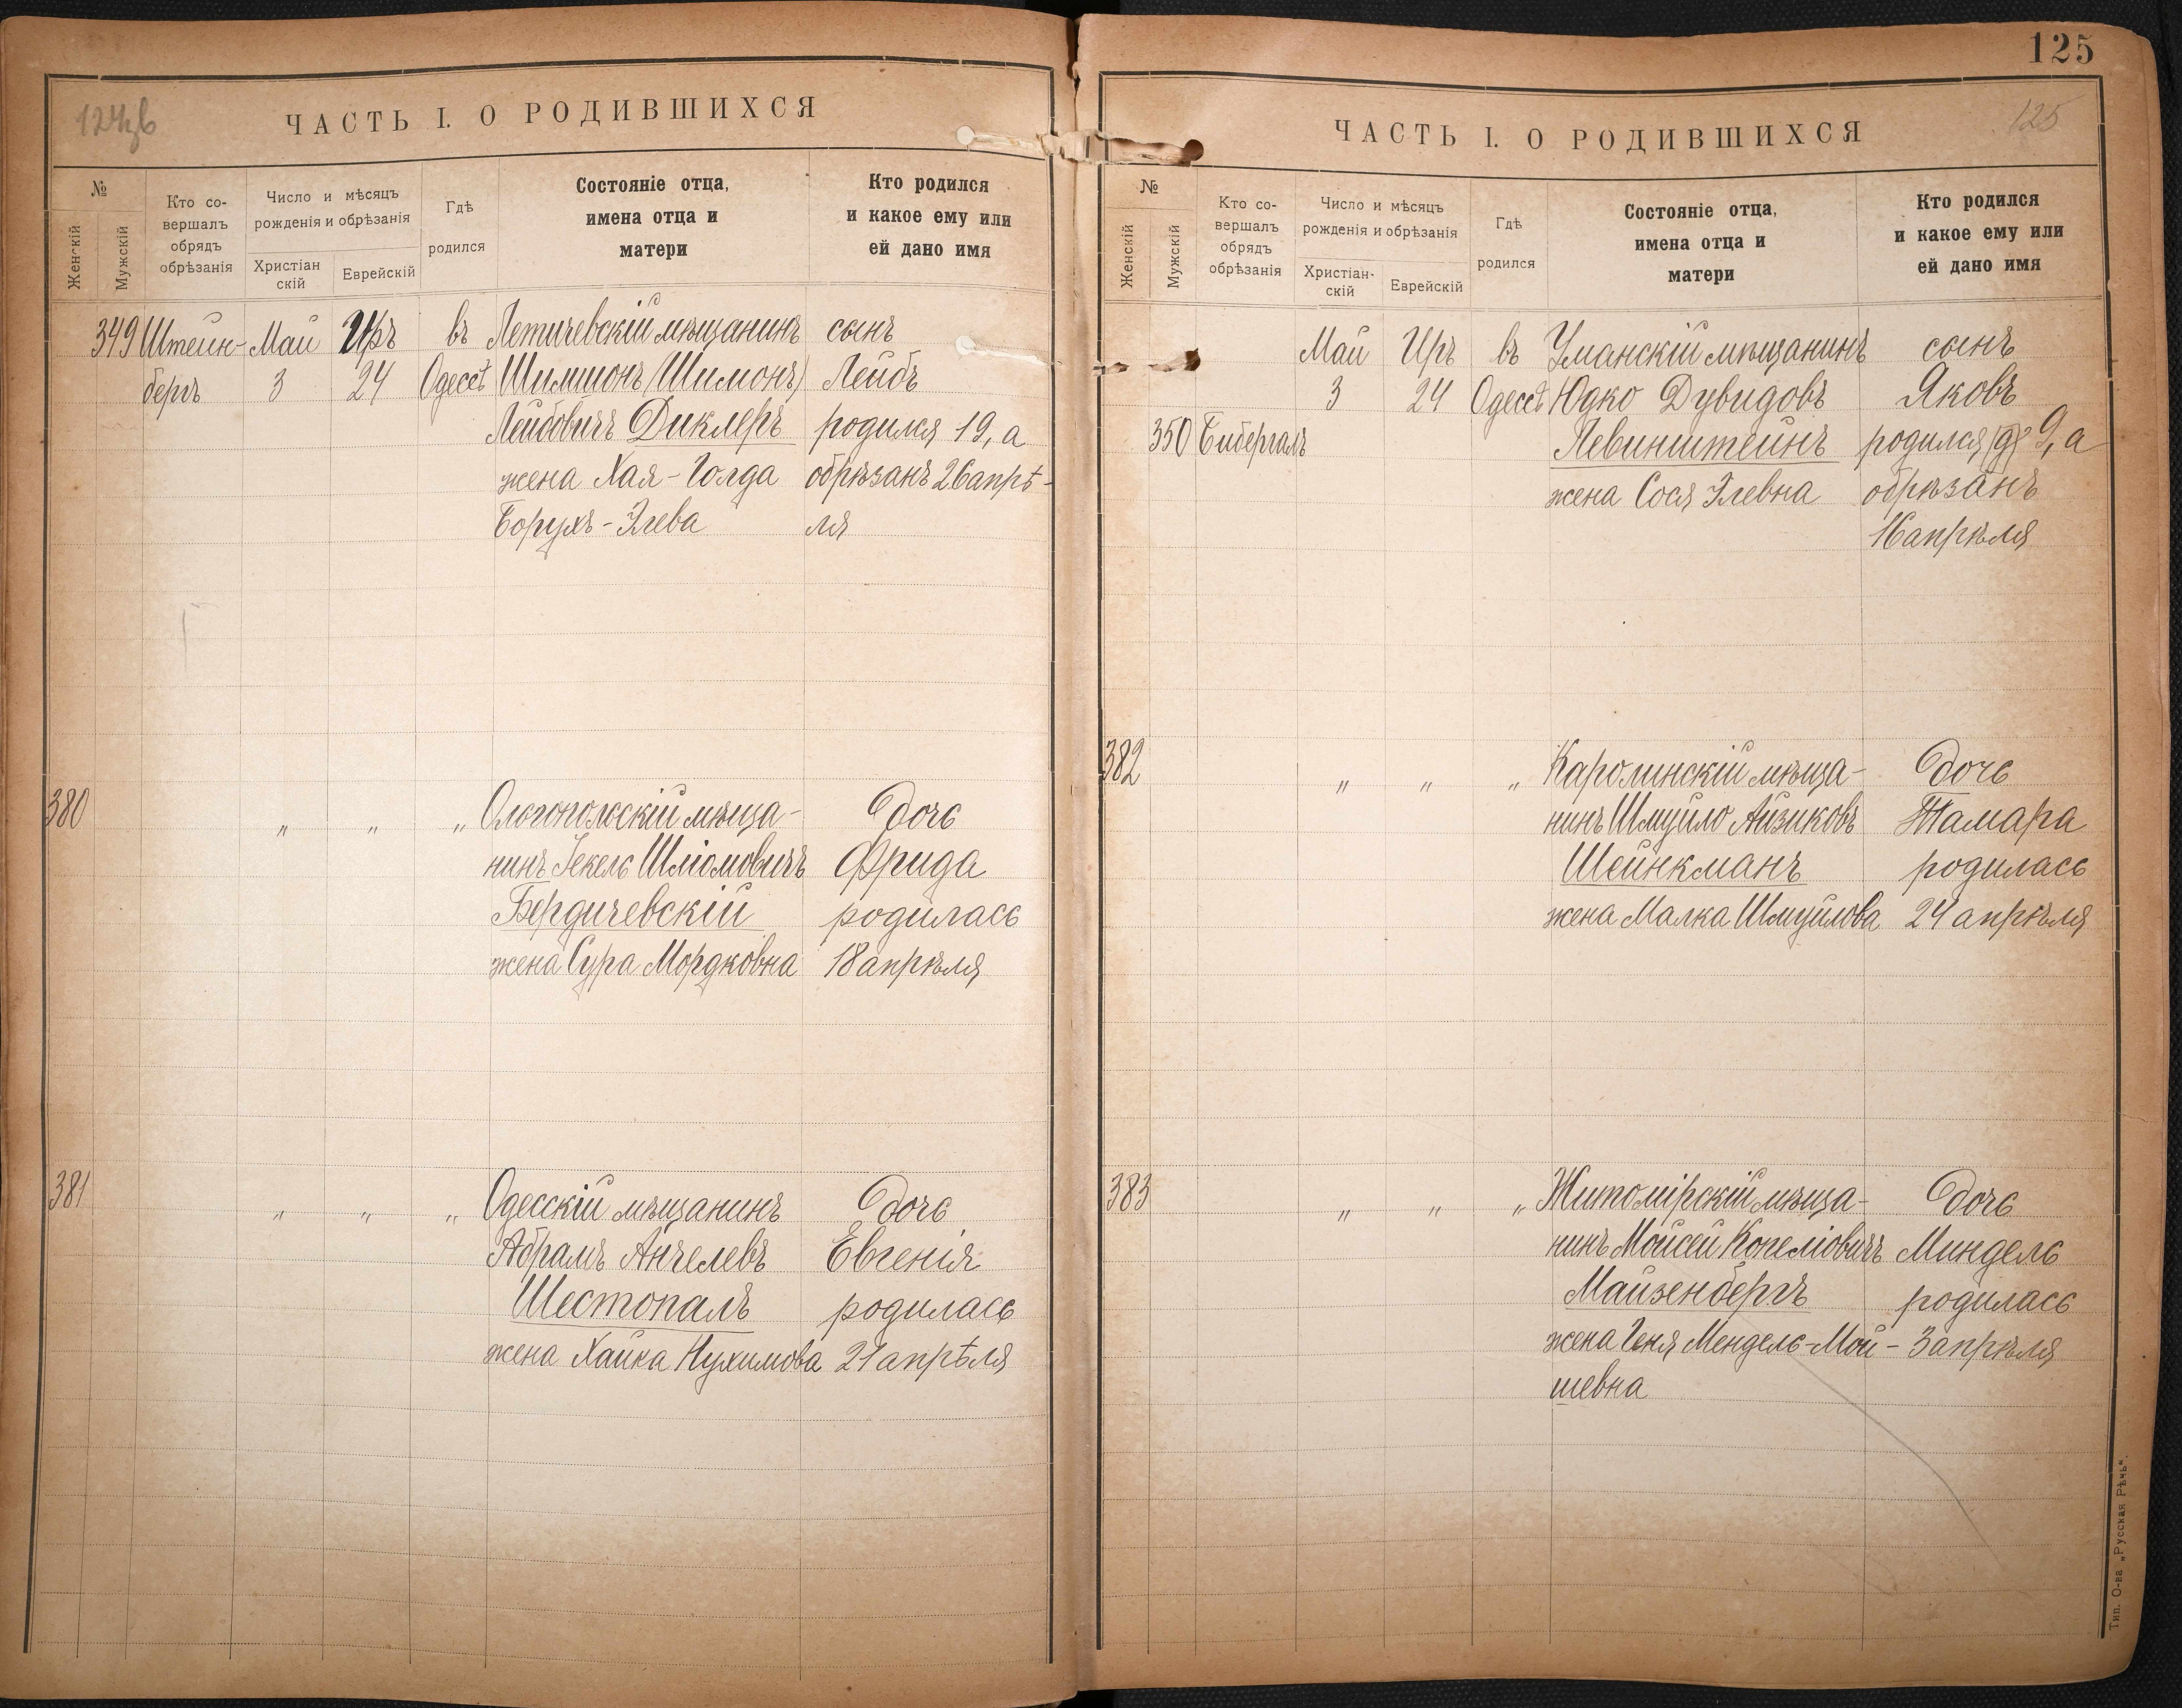 124об
ЧАСТЬ I. О РОДИВШИХСЯ
№
Женскій
Мужскій
Кто со-
вершалъ
обрядъ
обрѣзанія
Число и мѣсяцъ
рожденія и обрѣзанія
Христіан
скій
Еврейскій
Гдѣ
родился
Состояніе отца,
имена отца и
матери
Кто родился
и какое ему или
ей дано имя
349 Штейн- Май Иръ въ Летичевскій мѣщанинъ сынъ
бергъ 3 24 Одессѣ Шимшонъ (Шимонъ) Лейбъ
Лейбовичъ Диклеръ родился 19, а
жена Хая-Голда обрѣзанъ 26 апрѣ-
Борухъ-Элева ля
380 „ „ „ Ольгопольскій мѣща- дочь
нинъ Іекель Шліомовичъ Фрида
Бердичевскій родилась
жена Сура Мордковна 18 апрѣля
381 „ „ „ Одесскій мѣщанинъ дочь
Абрамъ Анчелевъ Евгенія
Шестопалъ родилась
жена Хайка Нухимова 21 апрѣля
125
125
ЧАСТЬ I. О РОДИВШИХСЯ
№
Женскій
Мужскій
Кто со-
вершалъ
обрядъ
обрѣзанія
Число и мѣсяцъ
рожденія и обрѣзанія
Христіан-
скій
Еврейскій
Гдѣ
родился
Состояніе отца,
имена отца и
матери
Кто родился
и какое ему или
ей дано имя
Май Иръ въ Уманскій мѣщанинъ сынъ
3 24 Одессѣ Юдко Дувидовъ Яковъ
350 Бибергалъ Левинштейнъ родился (9) 9, а
жена Сося Элевна обрѣзанъ
16 апрѣля
382 „ „ „ Каролинскій мѣща- дочь
нинъ Шмуйло Айзиковъ Тамара
Шейнкманъ родилась
жена Малка Шмуйлова 24 апрѣля
383 „ „ „ Житомірскій мѣща- дочь
нинъ Мойсей Копеліовичъ Миндель
Майзенбергъ родилась
жена Геня Мендель-Мой- 3 апрѣля
шевна
Тип. О-ва „Русская Рѣчь“.